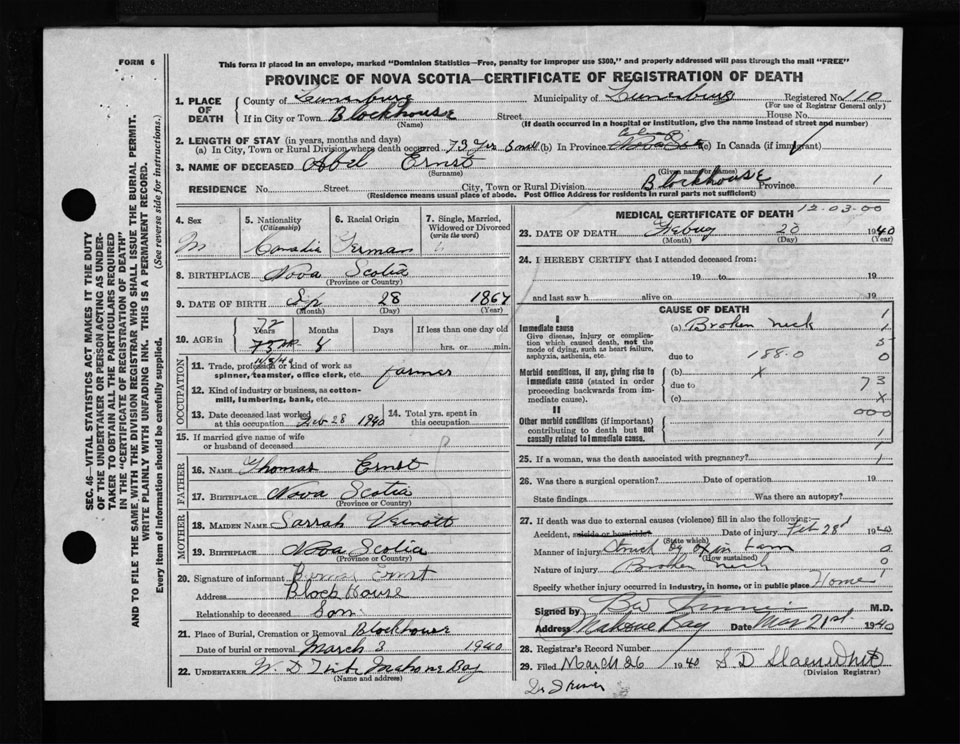 FORM 6
This form if placed in an envelope, marked "Dominion Statistics—Free, penalty for improper use $300," and properly addressed will pass through the mail "FREE"
PROVINCE OF NOVA SCOTIA—CERTIFICATE OF REGISTRATION OF DEATH
SEC. 46—VITAL STATISTICS ACT MAKES IT THE DUTY
OF THE UNDERTAKER OR PERSON ACTING AS UNDER-
TAKER TO OBTAIN ALL THE PARTICULARS REQUIRED
IN THE "CERTIFICATE OF REGISTRATION OF DEATH"
AND TO FILE THE SAME WITH THE DIVISION REGISTRAR WHO SHALL ISSUE THE BURIAL PERMIT.
WRITE PLAINLY WITH UNFADING INK. THIS IS A PERMANENT RECORD.
Every item of information should be carefully supplied. (See reverse side for instructions.)
1. PLACE OF DEATH
County of Lunenburg Municipality of Lunenburg Registered No. 110
(For use of Registrar General only)
If in City or Town Blockhouse Street House No.
(Name) (If death occurred in a hospital or institution, give the name instead of street and number)
2. LENGTH OF STAY (in years, months and days)
(a) In City, Town or Rural Division where death occurred 73 yrs 5 (b) In Province (c) In Canada (if immigrant)
3. NAME OF DECEASED Abel Ernst
(Surname) (Given name or names)
RESIDENCE No. Street City, Town or Rural Division Blockhouse Province 1
(Residence means usual place of abode. Post Office Address for residents in rural parts not sufficient)
4. Sex 5. Nationality (Citizenship) 6. Racial Origin 7. Single, Married, Widowed or Divorced (write the word)
M German
8. BIRTHPLACE Nova Scotia
(Province or Country)
9. DATE OF BIRTH Sp 28 1867
(Month) (Day) (Year)
10. AGE in Years Months Days If less than one day old
72
hrs. or min.
OCCUPATION
11. Trade, profession or kind of work as spinner, teamster, office clerk, etc. farmer
12. Kind of industry or business, as cotton-mill, lumbering, bank, etc.
13. Date deceased last worked at this occupation Feb 28 1940 14. Total yrs. spent in this occupation
15. If married give name of wife or husband of deceased
FATHER
16. NAME Thomas Ernst
17. BIRTHPLACE Nova Scotia
(Province or Country)
MOTHER
18. MAIDEN NAME Sarrah Veinott
19. BIRTHPLACE Nova Scotia
(Province or Country)
20. Signature of informant Ernst
Address Block House
Relationship to deceased Son
21. Place of Burial, Cremation or Removal Blockhouse
Date of burial or removal March 3 1940
22. UNDERTAKER Mahone Bay
(Name and address)
MEDICAL CERTIFICATE OF DEATH 12-03-00
23. DATE OF DEATH 28 1940
(Month) (Day) (Year)
24. I HEREBY CERTIFY that I attended deceased from:
19 to 19
and last saw h alive on 19
CAUSE OF DEATH
I
Immediate cause (a) Broken neck
Give disease, injury or complication which caused death, not the mode of dying, such as heart failure, asphyxia, asthenia, etc.
due to 188.0
Morbid conditions, if any, giving rise to immediate cause (stated in order proceeding backwards from immediate cause). (b) X
due to
(c)
II
Other morbid conditions (if important) contributing to death but not causally related to immediate cause.
1
1
5
0
73
X
000
1
25. If a woman, was the death associated with pregnancy? 1
26. Was there a surgical operation? Date of operation 19
State findings Was there an autopsy?
27. If death was due to external causes (violence) fill in also the following:—
Accident, suicide or homicide? Date of injury Feb 28 1940
(State which)
Manner of injury Struck by ox in barn 0
(How sustained)
Nature of injury Broken neck 0
Specify whether injury occurred in industry, in home, or in public place Home 1
Signed by M.D.
Address Mahone Bay Date Mar 21st 1940
28. Registrar's Record Number
29. Filed March 26 1940 S D
(Division Registrar)